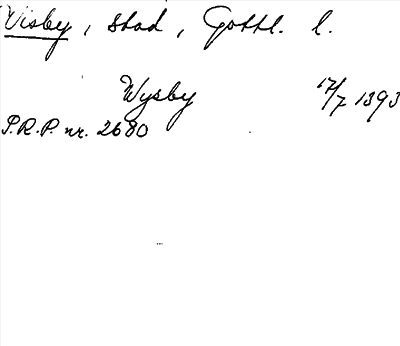 Visby, stad, Gottl. l.
Wysby 17/7 1393
P.R.P. nr. 2680